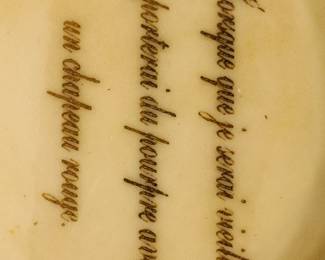 lorsque que je serai vieille
porterai du pourpre av
un chapeau rouge.